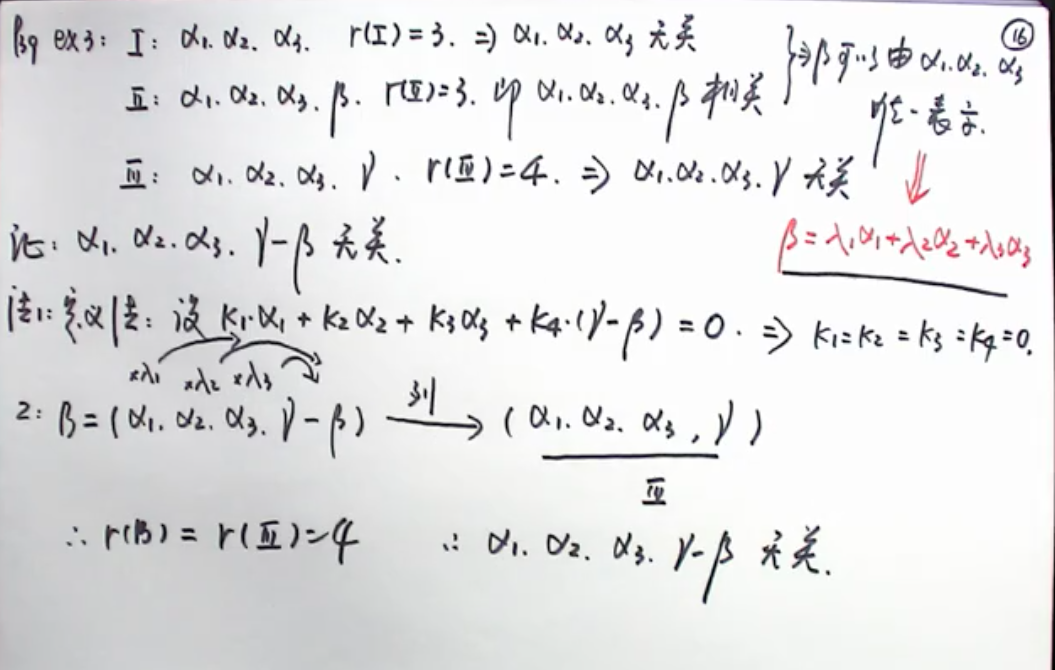 P39 ex3: Ⅰ: α₁. α₂. α₃. r(Ⅰ)=3. ⇒ α₁. α₂. α₃ 无关
Ⅱ: α₁. α₂. α₃. β. r(Ⅱ)=3. 即 α₁. α₂. α₃. β 相关
} ⇒ β可以由 α₁. α₂. α₃
唯一表示.
⑯
Ⅲ: α₁. α₂. α₃. γ. r(Ⅲ)=4. ⇒ α₁. α₂. α₃. γ 无关
⇓
β=λ₁α₁+λ₂α₂+λ₃α₃
证: α₁. α₂. α₃. γ-β 无关.
法1: 定义法: 设 k₁·α₁ + k₂α₂ + k₃α₃ + k₄·(γ-β) = 0. ⇒ k₁=k₂=k₃=k₄=0.
×λ₁ ×λ₂ ×λ₃
2: B=(α₁. α₂. α₃. γ-β) 列→ (α₁. α₂. α₃, γ)
Ⅲ
∴ r(B) = r(Ⅲ)=4 ∴ α₁. α₂. α₃. γ-β 无关.